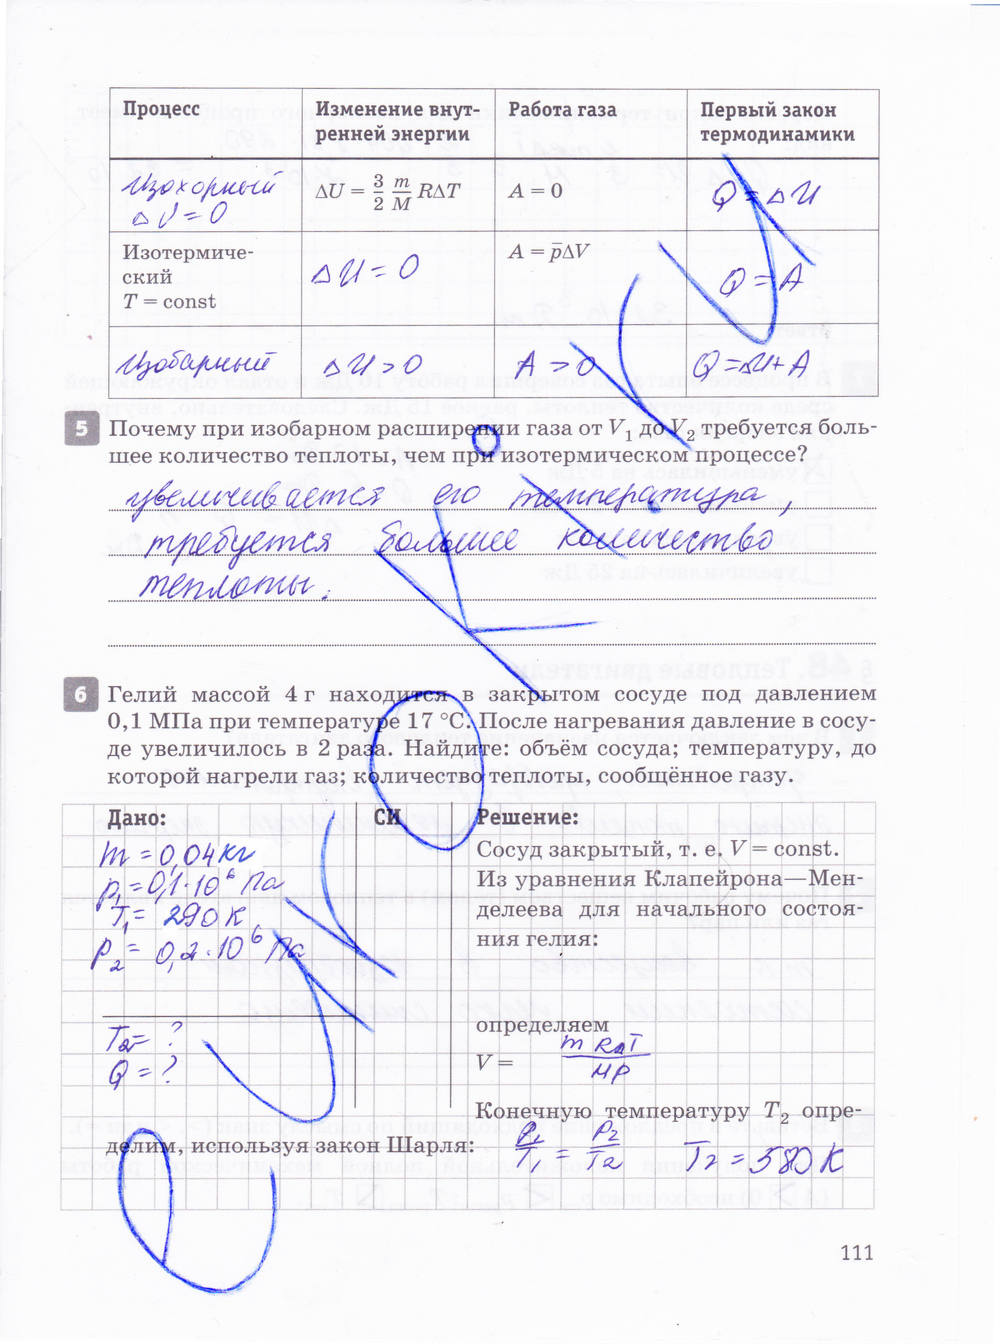 Процесс
Изменение внут-
ренней энергии
Работа газа
Первый закон
термодинамики
Изохорный
ΔV = 0
ΔU = 3/2 m/M RΔT
A = 0
Q = ΔU
Изотермиче-
ский
T = const
ΔU = 0
A = p̄ΔV
Q = A
Изобарный
ΔU > 0
A > 0
Q = ΔU + A
5 Почему при изобарном расширении газа от V₁ до V₂ требуется боль-
шее количество теплоты, чем при изотермическом процессе?
увеличивается его температура,
требуется большее количество
теплоты.
6 Гелий массой 4 г находится в закрытом сосуде под давлением
0,1 МПа при температуре 17 °С. После нагревания давление в сосу-
де увеличилось в 2 раза. Найдите: объём сосуда; температуру, до
которой нагрели газ; количество теплоты, сообщённое газу.
Дано:
m = 0,04 кг
p₁ = 0,1·10⁶ Па
T₁ = 290 К
p₂ = 0,2·10⁶ Па
T₂ = ?
Q = ?
СИ
Решение:
Сосуд закрытый, т. е. V = const.
Из уравнения Клапейрона—Мен-
делеева для начального состоя-
ния гелия:
определяем
V = m RΔT / Mp
Конечную температуру T₂ опре-
делим, используя закон Шарля: p₁/T₁ = p₂/T₂ T₂ = 580 К
111